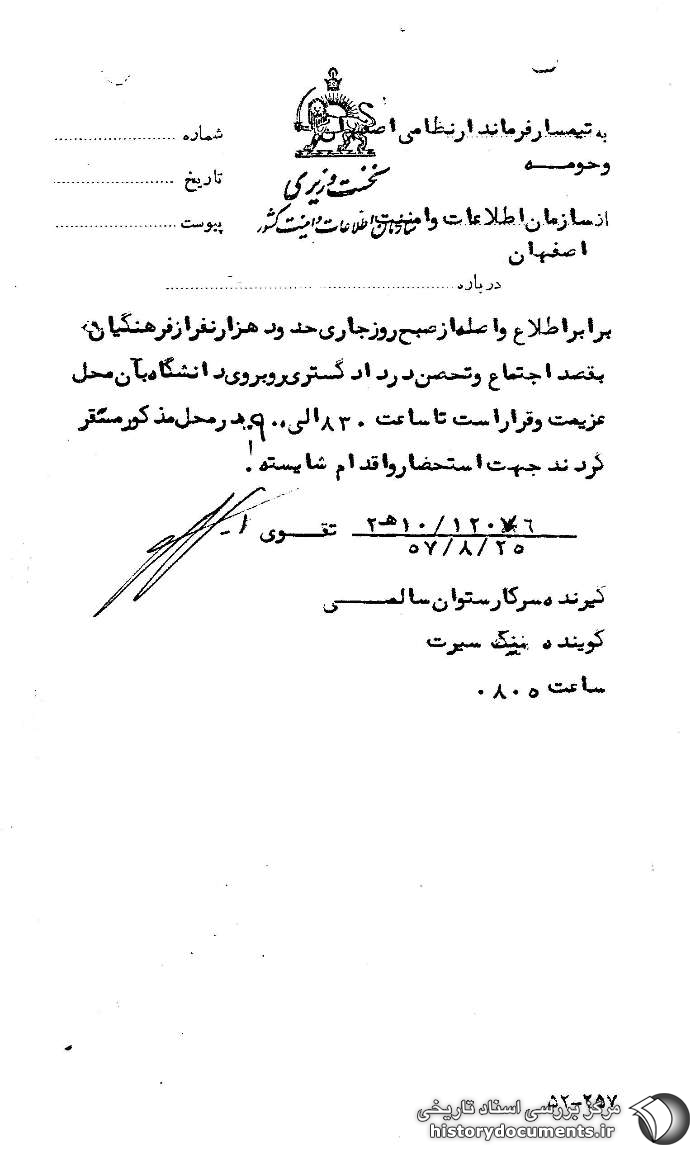 به تیمسار فرماندار نظامی اصفهان
وحومـــه
شماره
تاریخ
پیوست
نخست وزیری
سازمان اطلاعات و امنیت کشور
از سازمان اطلاعات و امنیت
اصفهان
درباره
برابر اطلاع واصله از صبح روز جاری حدود هزار نفر از فرهنگیان
بقصد اجتماع و تحصن در دادگستری روبروی دانشگاه بآن محل
عزیمت و قرار است تا ساعت ۸۳۰ الی ۹۰۰ در محل مذکور مستقر
گردند جهت استحضار و اقدام شایسته !
۱۰/۱۲۰۷۶هـ۲ تقـــوی
۵۷/۸/۲۵
گیرنده سرکار ستوان سالمـــی
گوینده نیک سیرت
ساعت ۰۸۰۵
۵۲-۲۵۷
مرکز بررسی اسناد تاریخی
historydocuments.ir